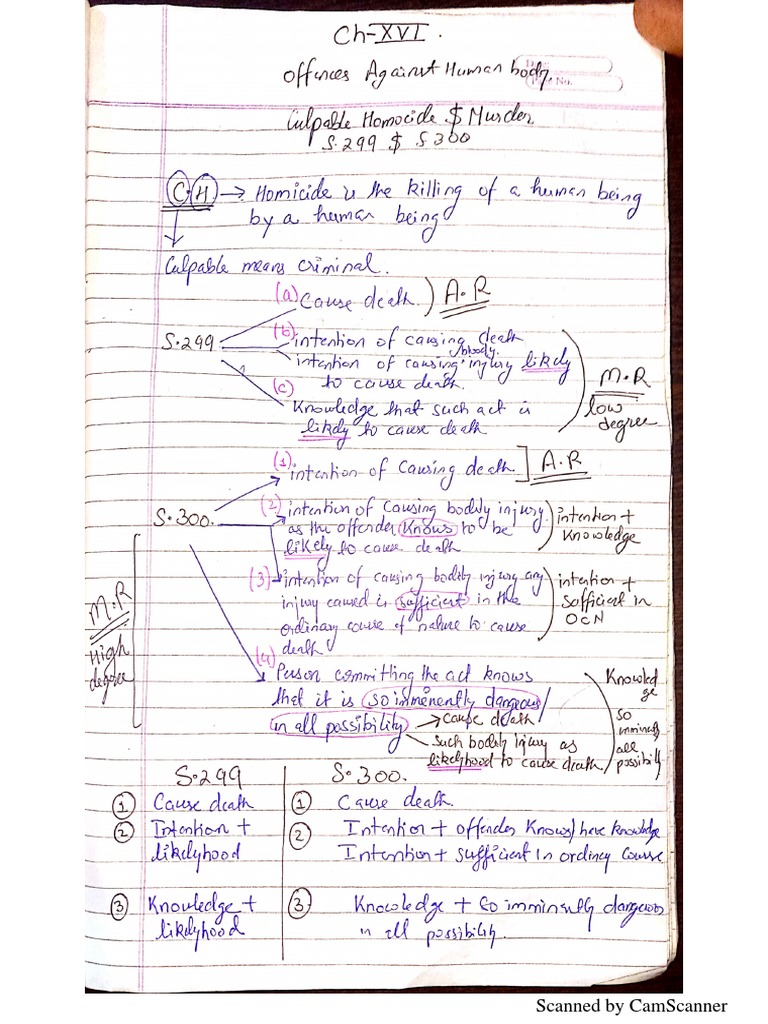 Ch-XVI.
Offences Against Human body
Culpable Homocide $ Murder
S.299 $ S.300
C.H → Homicide is the killing of a human being
by a human being
Culpable means criminal.
(a) Cause death ) A.R
S.299
(b) intention of causing death
intention of causing bodily injury likely
to cause death.
(c) Knowledge that such act is
likely to cause death
M.R
low
degree
(1) intention of causing death ] A.R
S.300.
(2) intention of causing bodily injury
as the offender knows to be
likely to cause death
intention +
Knowledge
(3) intention of causing bodily injury any
injury caused is sufficient in the
ordinary course of nature to cause
death
intention +
Sufficient in
OCN
M.R
High
degree
(4) Person committing the act knows
that it is so imminently dangerous/
in all possibility → Cause death
Such bodily injury as
likelyhood to cause death
Knowledge
so
imminently
all
possibility
S.299 S.300.
1 Cause death 1 Cause death.
2 Intention + likelyhood
2 Intention + offender Knows/have knowledge
Intention + sufficient in ordincy course
3 Knowledge + likelyhood
3 Knowledge + so imminently dangerous
in all possibility.
Scanned by CamScanner